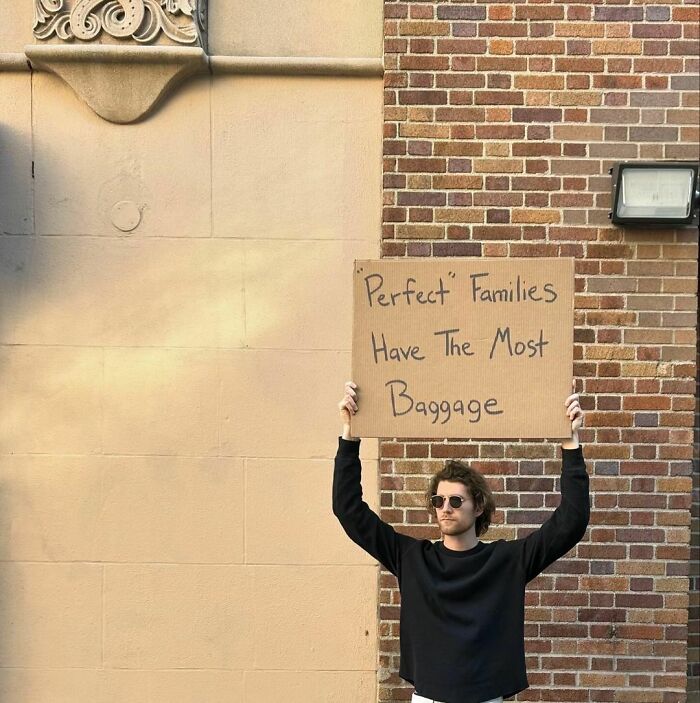 "Perfect" Families
Have The Most
Baggage